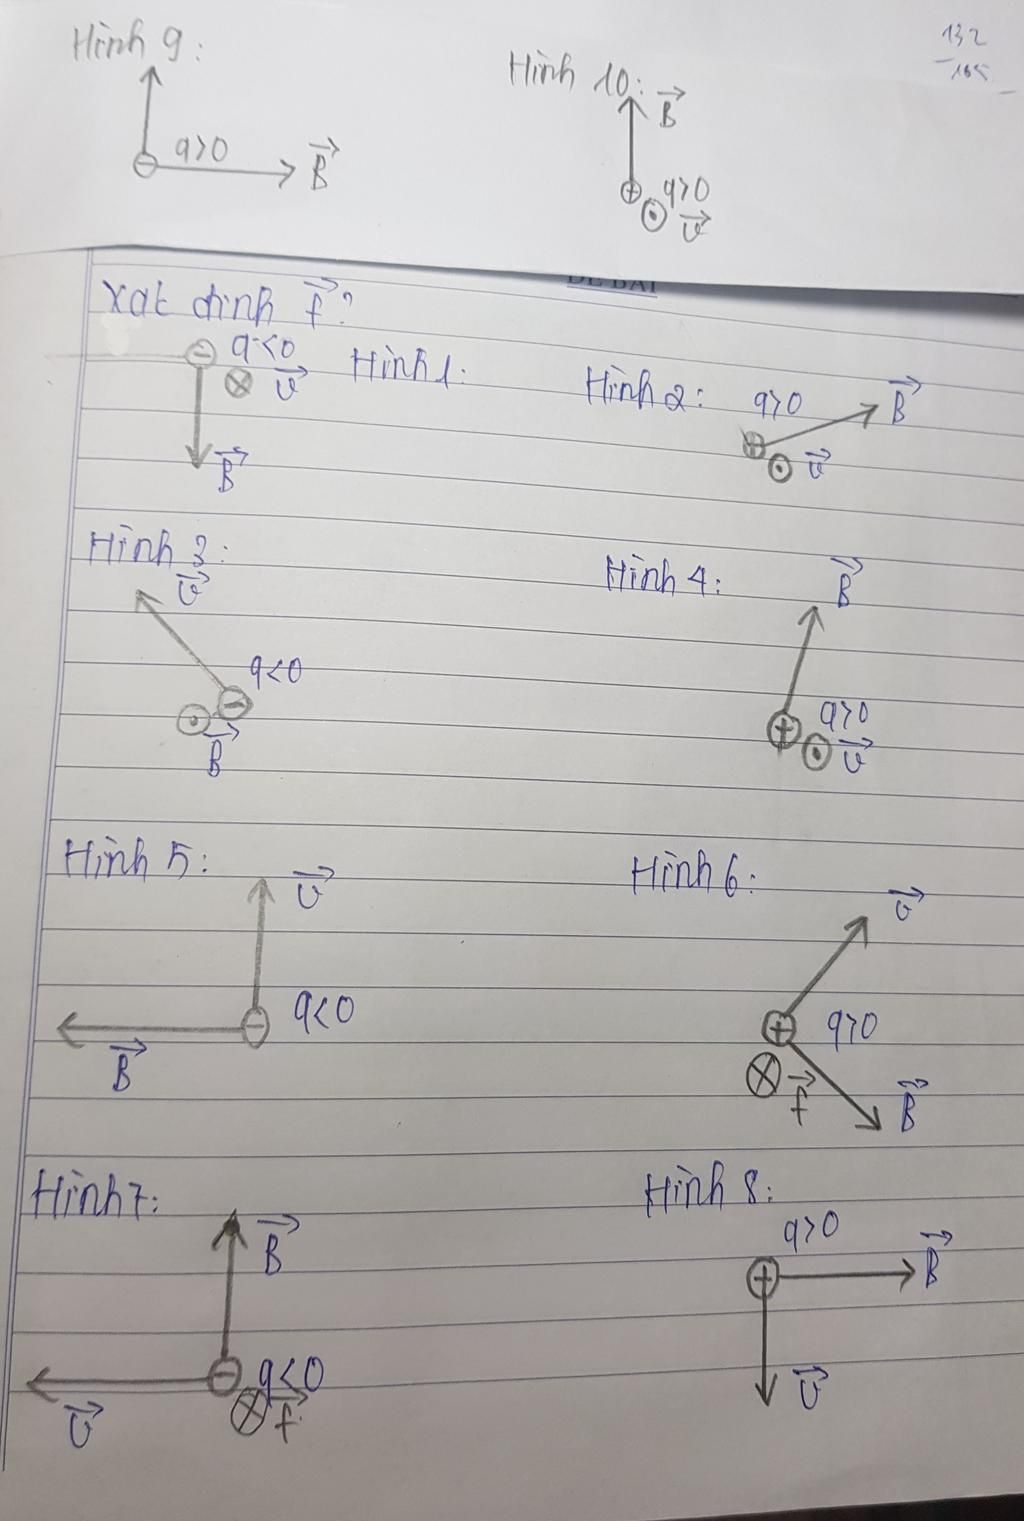 Hình 9:
132
165
Hình 10:
B
q>0
B
q>0
v
ĐỀ BÀI
Xát định f?
q<0
Hình 1:
v
B
Hình 2:
q>0
B
v
Hình 3:
v
q<0
B
Hình 4:
B
q>0
v
Hình 5:
v
q<0
B
Hình 6:
v
q>0
f
B
Hình 7:
B
q<0
v
f
Hình 8:
q>0
B
v